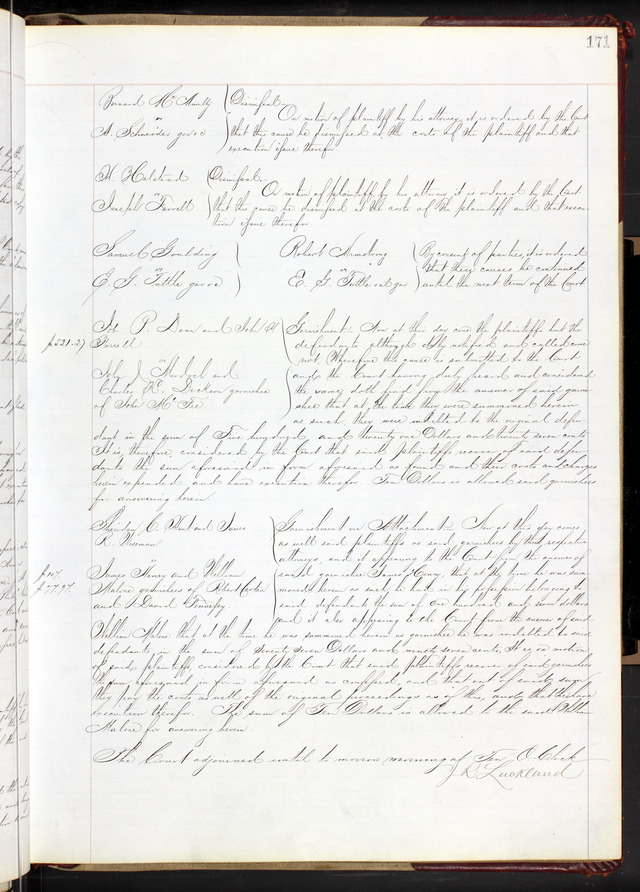 171
Bernard Mc Anully } Dismissal.
vs On motion of plaintiff by his attorney, it is ordered by the Court
A. Schneider gar &c } that this cause be dismissed at the costs of the plaintiff and that
execution issue therefor
H. Halstead } Dismissal.
vs On motion of plaintiff by his attorney it is ordered by the Court
Joseph Farrell } that the cause be dismissed at the costs of the plaintiff and that execu
tion issue therefor.
Samuel Goulding } Robert Armstrong } By consent of parties, it is ordered
vs vs that these causes be continued
E. G. Tuttle gar &c } E. G. Tuttle gar } until the next term of the Court
P. Doan and John } Garnishment. Now at this day come the plaintiff but the
$521.27 Farrell defendants although duly notified and called come
vs not. Wherefore this cause is submitted to the Court
John J. and and the Court having duly heard and considered
Charles Dickson garnishee the same, doth find from the answer of said garni
of John Mc Fee shee that at the time they were summoned herein
as such, they were indebted to the original defen
dant in the sum of Five hundred and twenty one Dollars and twenty seven cents
It is, therefore, considered by the Court that said plaintiffs recover of said defen
dants the sum aforesaid in form aforesaid as found and their costs and charges
herein expended and have execution therefor. Ten Dollars is allowed said garnishees
for answering herein.
C. and James } Garnishment on Attachment. Now at this day comes
R. as well said plaintiffs as said garnishees by their respective
attorneys, and it appearing to the Court from the answer of
$107. James Henry and William said garnishee James Henry, that at the time he was sum
$77.97. Malone garnishees of Robert moned herein as such, he had in his possession belonging to
and David said defendant the sum of one hundred and seven dollars
and it also appearing to the Court from the answer of said
William Malone that at the time he was summoned herein as garnishee he was indebted to said
defendants in the sum of seventy seven Dollars and ninety seven cents. It is on motion
of said plaintiffs considered by the Court that said plaintiffs recover of said garnishees
the sum aforesaid in form aforesaid as confessed, and that out of said sum
they pay the costs as well of the original proceedings as of this, and that
execution therefor. The sum of Ten Dollars is allowed to the said William
Malone for answering herein
The Court adjourned until tomorrow morning at Ten O'Clock
J R Lackland